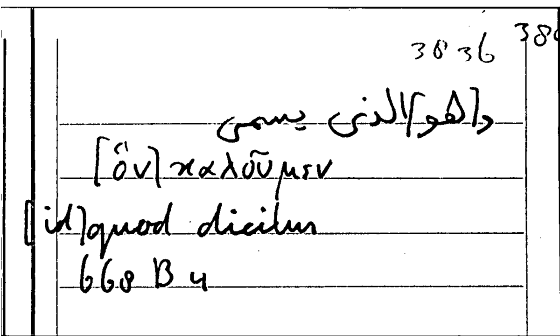 3836 380
و[هو] الذى يسمى
[ὃν] καλοῦμεν
[id] quod dicitur
668 B 4